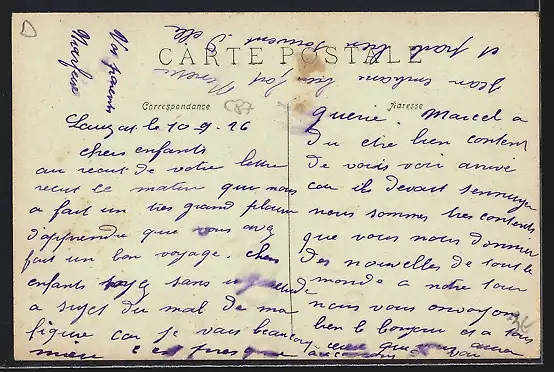 CARTE POSTALE
Correspondance
Adresse
C87
Lauzat le 10-9-26
chers enfants
au recut de votre lettre
recut ce matin que nous
a fait un tres grand plaisir
d'apprendre que vous avez
fait un bon voyage. chers
enfants soyez sans inquietude
a sujet du mal de ma
figure car je vais beaucoup
mieu c'est presque
guerie. Marcel a
du etre bien content
de vous voir arrivé
car il devait sennuyer
nous sommes tres contents
que vous nous donner
des nouvelles de tout le
monde a notre tour
nous vous envoyons
bien le bonjour et a tous
ceux que
vos parents